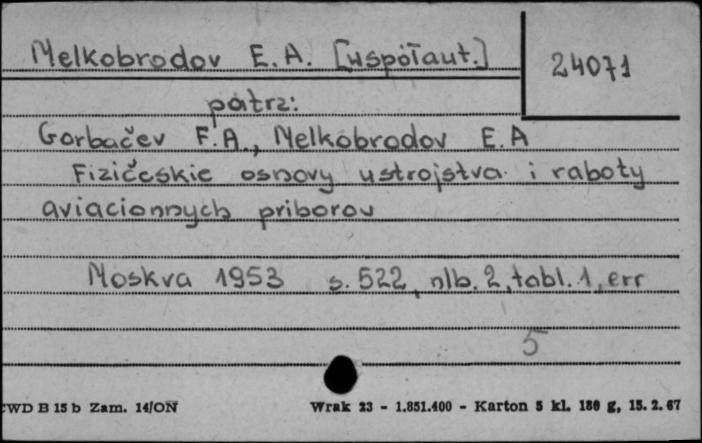 Melkobrodov E. A. [współaut.]
24071
patrz:
Gorbačev F.A., Melkobrodov E. A
Fizičeskie osnovy ustrojstva i raboty
aviacionnych priborov
Moskva 1953 s. 522, nlb. 2, tabl. 1, err
5
CWD B 15 b Zam. 14/ON Wrak 23 - 1.851.400 - Karton 5 kl. 180 g, 15. 2. 67